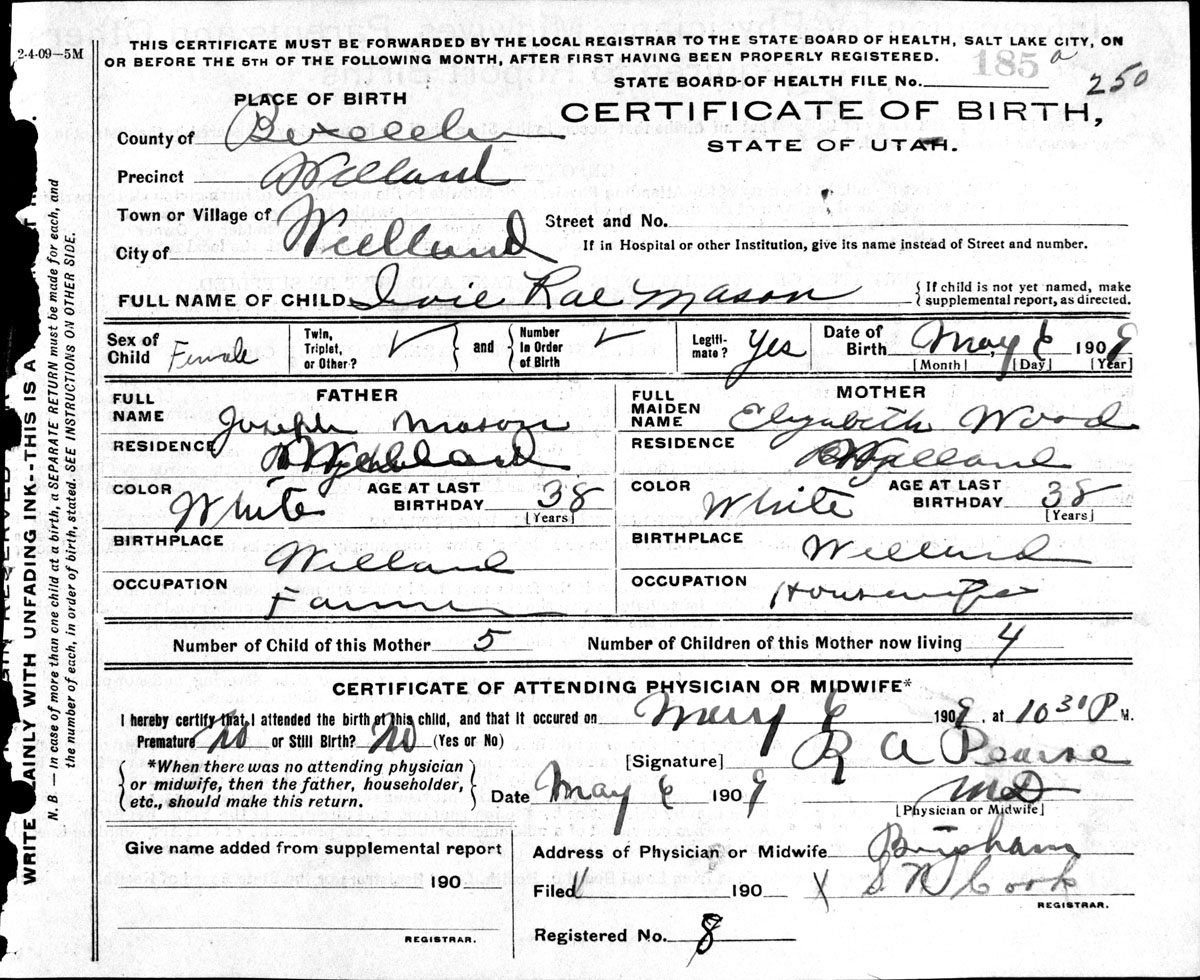 2-4-09—5M
THIS CERTIFICATE MUST BE FORWARDED BY THE LOCAL REGISTRAR TO THE STATE BOARD OF HEALTH, SALT LAKE CITY, ON
OR BEFORE THE 5TH OF THE FOLLOWING MONTH, AFTER FIRST HAVING BEEN PROPERLY REGISTERED.
185 a
STATE BOARD OF HEALTH FILE No. 250
PLACE OF BIRTH
CERTIFICATE OF BIRTH,
STATE OF UTAH.
County of Boxelder
Precinct Willard
Town or Village of Willard
Street and No.
City of
If in Hospital or other Institution, give its name instead of Street and number.
FULL NAME OF CHILD Ivie Rae Mason
{ If child is not yet named, make
supplemental report, as directed.
Sex of Child Female
Twin, Triplet, or Other? ✓
and
Number in Order of Birth ✓
Legitimate? Yes
Date of Birth May 6 1909
[Month] [Day] [Year]
FATHER
FULL NAME Joseph Mason
RESIDENCE Willard
COLOR White
AGE AT LAST BIRTHDAY 38
[Years]
BIRTHPLACE Willard
OCCUPATION Farmer
MOTHER
FULL MAIDEN NAME Elizabeth Wood
RESIDENCE Willard
COLOR White
AGE AT LAST BIRTHDAY 38
[Years]
BIRTHPLACE Willard
OCCUPATION Housewife
Number of Child of this Mother 5
Number of Children of this Mother now living 4
CERTIFICATE OF ATTENDING PHYSICIAN OR MIDWIFE*
I hereby certify that I attended the birth of this child, and that it occured on May 6 1909, at 10 31 P M.
Premature No or Still Birth? No (Yes or No)
{ *When there was no attending physician
or midwife, then the father, householder,
etc., should make this return. }
[Signature] R A Pearse
MD
[Physician or Midwife]
Date May 6 1909
Give name added from supplemental report
190
REGISTRAR.
Address of Physician or Midwife Brigham
Filed 190
S N Cook
REGISTRAR.
Registered No. 8
WRITE PLAINLY WITH UNFADING INK--THIS IS A
N. B.—In case of more than one child at a birth, a SEPARATE RETURN must be made for each, and
the number of each, in order of birth, stated. SEE INSTRUCTIONS ON OTHER SIDE.